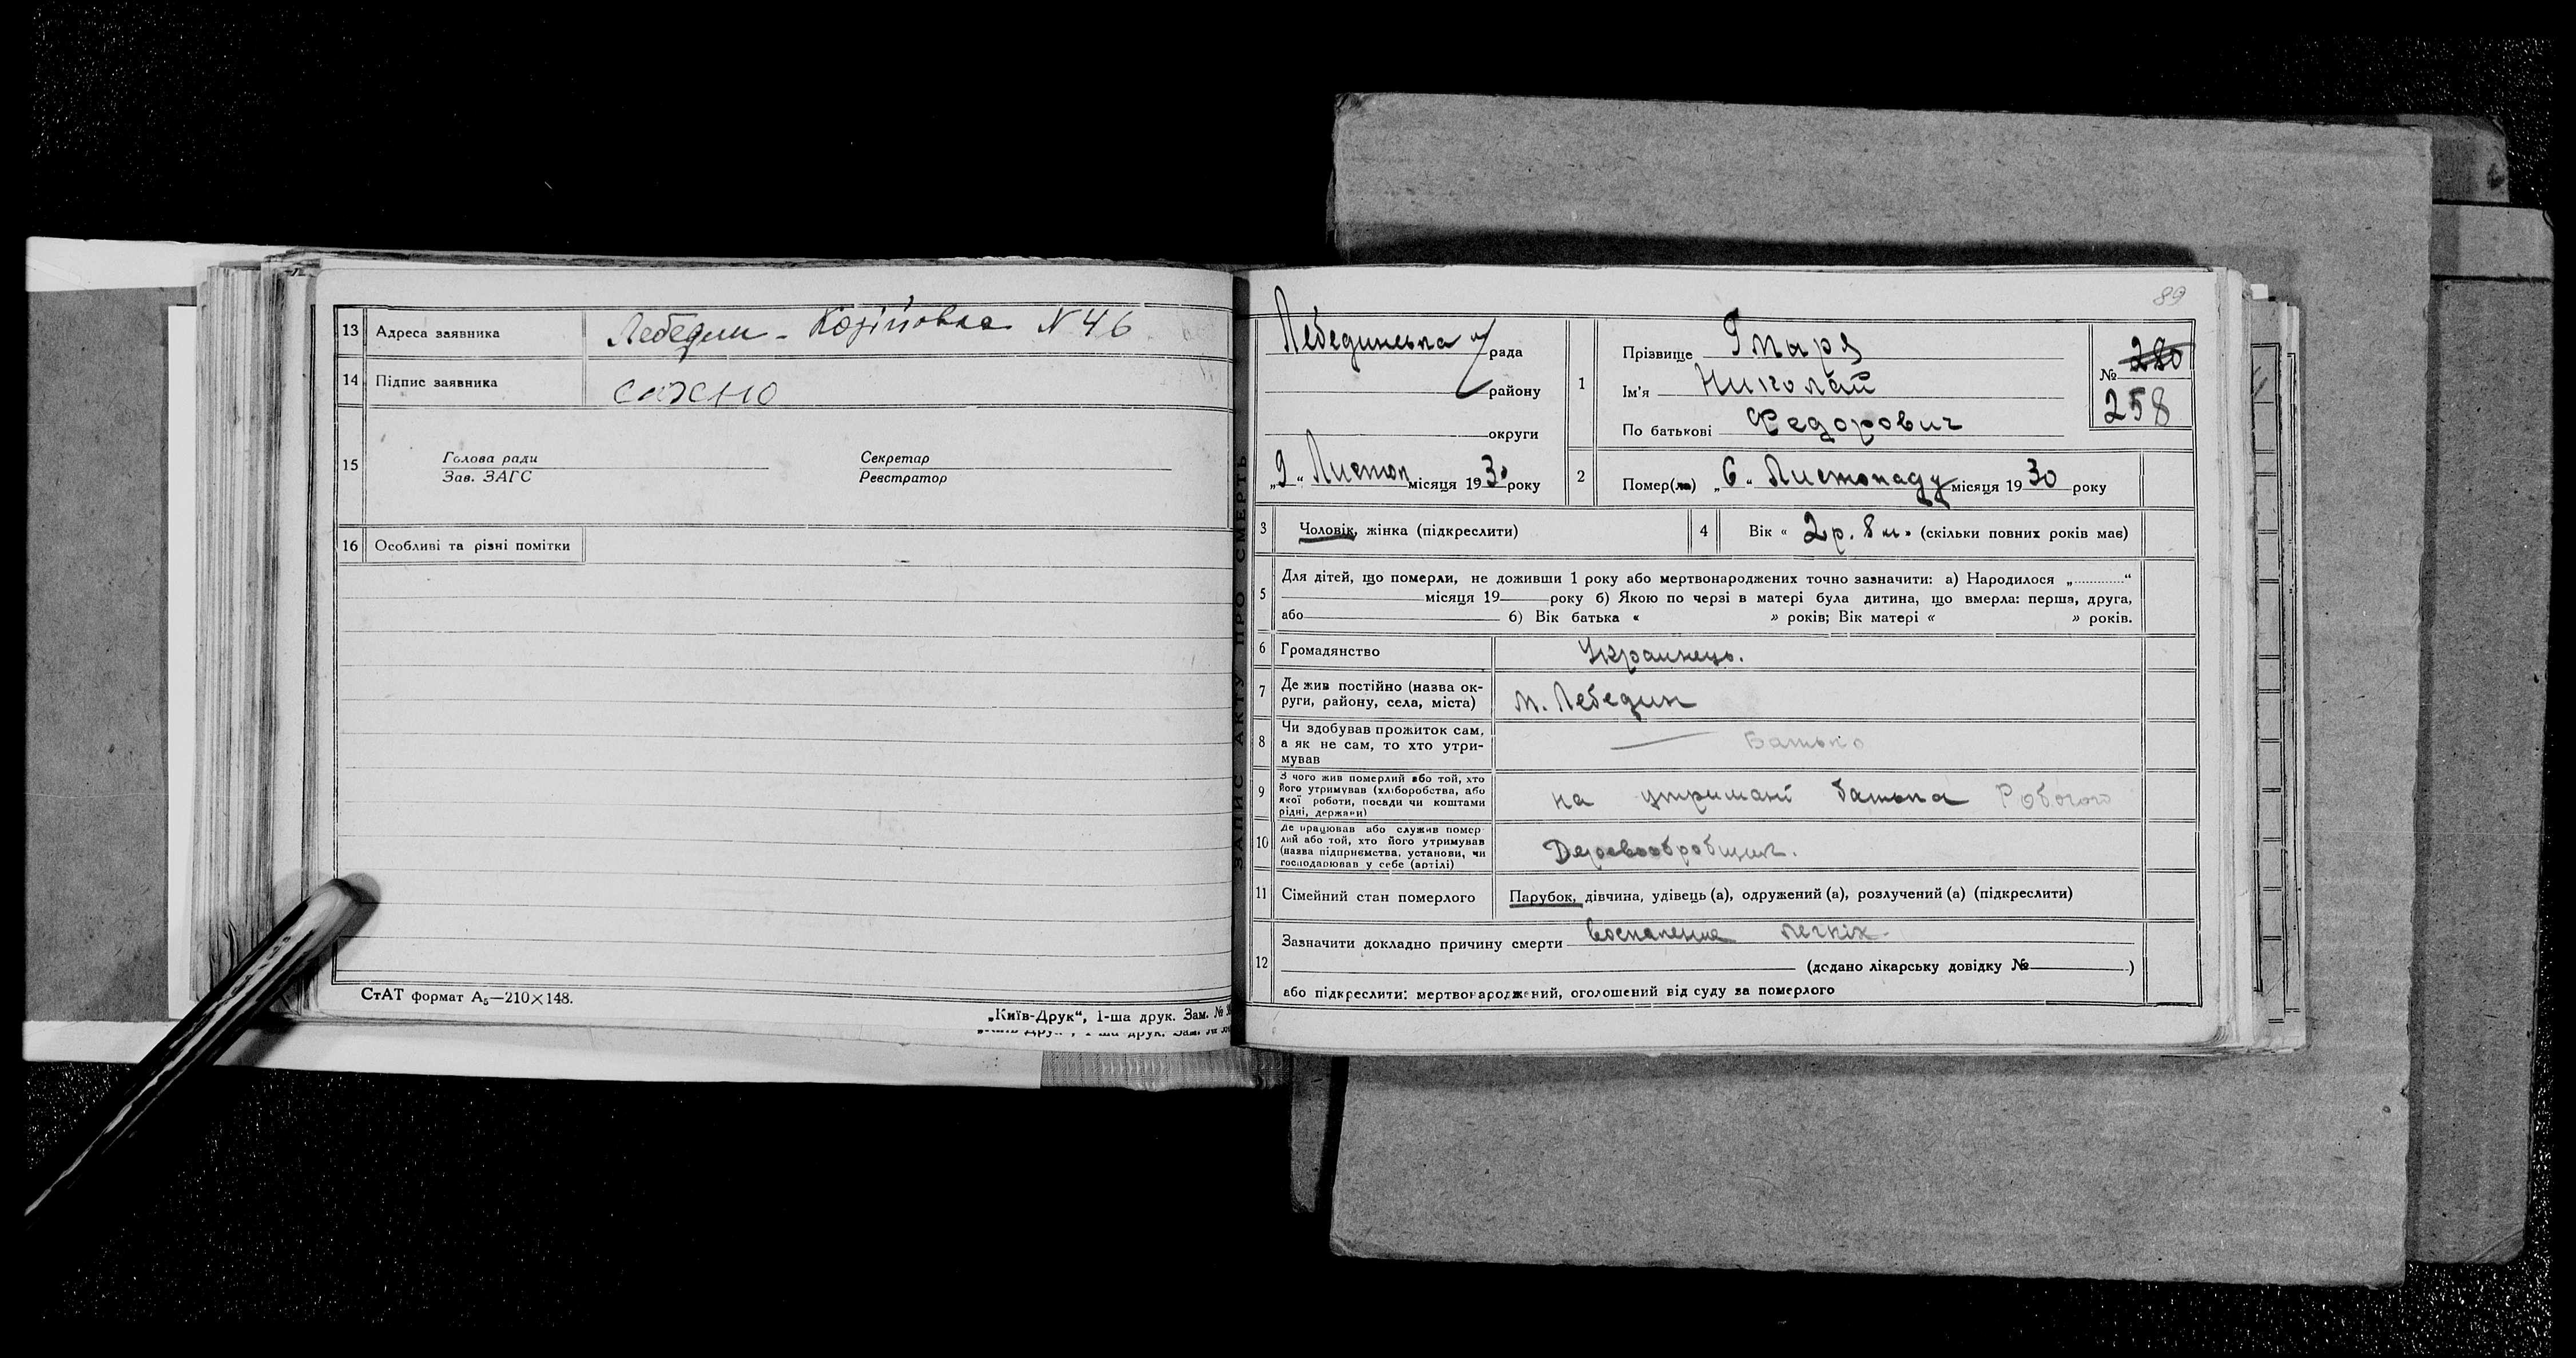 13 Адреса заявника Лебедин - Козіївка N 46
14 Підпис заявника
15 Голова ради
Зав. ЗАГС
Секретар
Реєстратор
16 Особливі та різні помітки
СтАТ формат А₅—210×148.
„Київ-Друк“, 1-ша друк. Зам. №
ЗАПИС АКТУ ПРО СМЕРТЬ
89
Лебединська рада
району
округи
„9“ Листоп місяця 1930 року
1 Прізвище
Ім'я Николай
По батькові Федорович
№ 280
258
2 Помер(ла) „6“ Листопаду місяця 1930 року
3 Чоловік, жінка (підкреслити)
4 Вік « 2 р. 8 м » (скільки повних років має)
5 Для дітей, що померли, не доживши 1 року або мертвонароджених точно зазначити: а) Народилося „............“
місяця 19 року б) Якою по черзі в матері була дитина, що вмерла: перша, друга,
або б) Вік батька « » років; Вік матері « » років.
6 Громадянство Украинець.
7 Де жив постійно (назва ок-
руги, району, села, міста) м. Лебедин
8 Чи здобував прожиток сам,
а як не сам, то хто утри-
мував — Батько
9 З чого жив померлий або той, хто
його утримував (хліборобства, або
якої роботи, посади чи коштами
рідні, держави) на утримані батька Робочого
10 Де працював або служив помер-
лий або той, хто його утримував
(назва підприємства, установи, чи
господарював у себе (артілі) Деревообробщик.
11 Сімейний стан померлого Парубок, дівчина, удівець (а), одружений (а), розлучений (а) (підкреслити)
12 Зазначити докладно причину смерти воспаление легкіх.
(додано лікарську довідку № )
або підкреслити: мертвонароджений, оголошений від суду за померлого